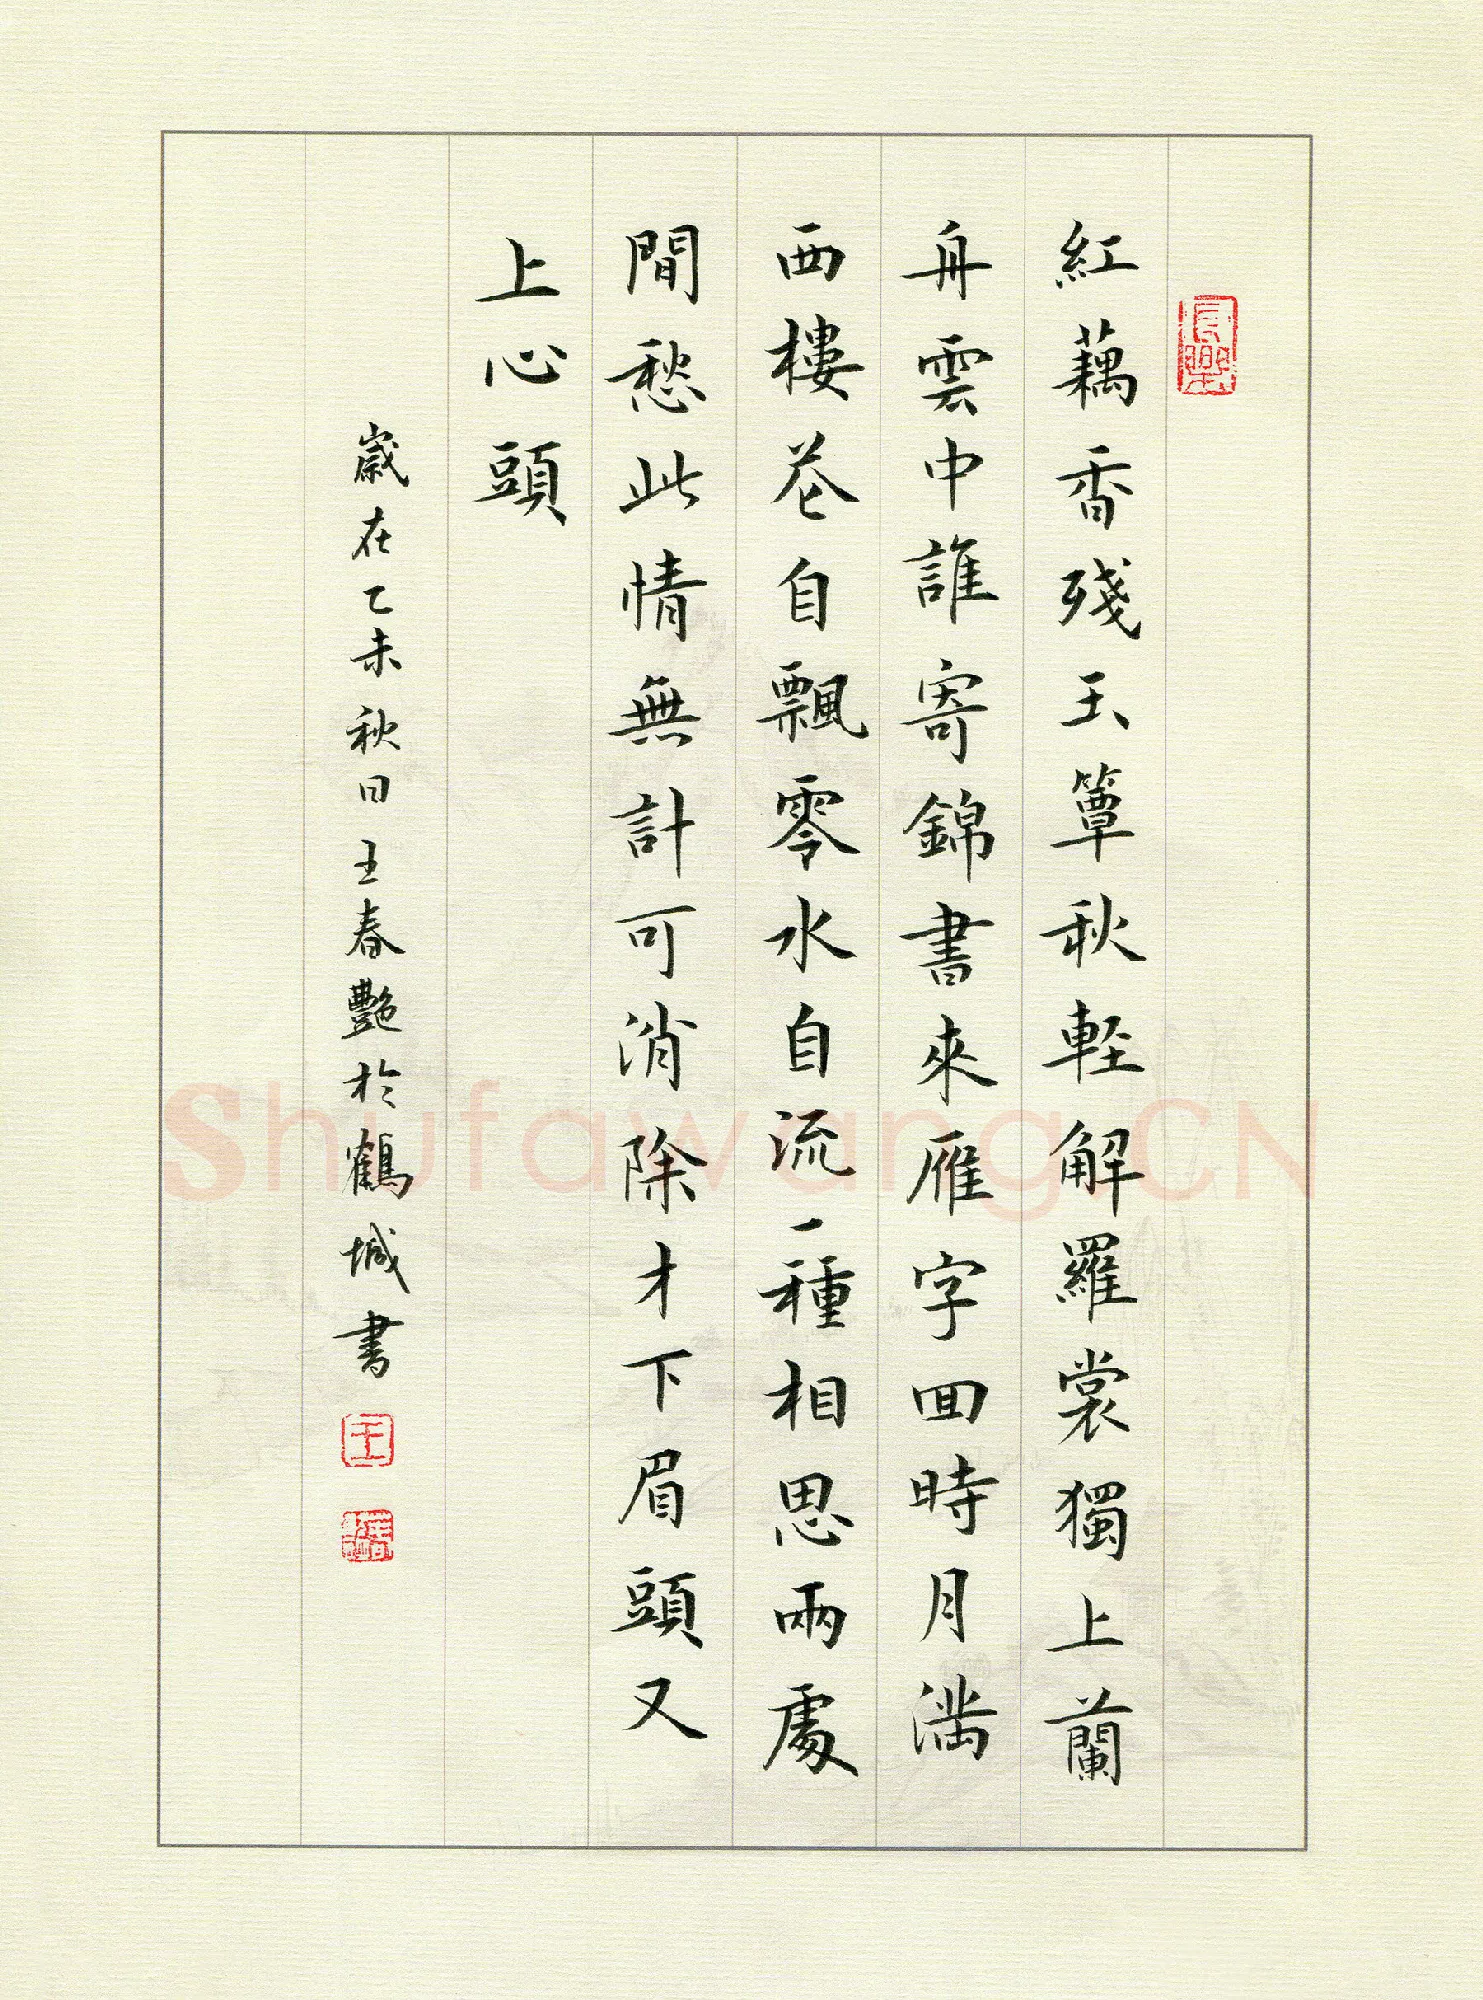 紅藕香殘玉簟秋輕解羅裳獨上蘭
舟雲中誰寄錦書來雁字回時月滿
西樓花自飄零水自流一種相思兩處
閒愁此情無計可消除才下眉頭又
上心頭
歲在乙未秋日王春艷於鶴城書
王
Shufawang.CN